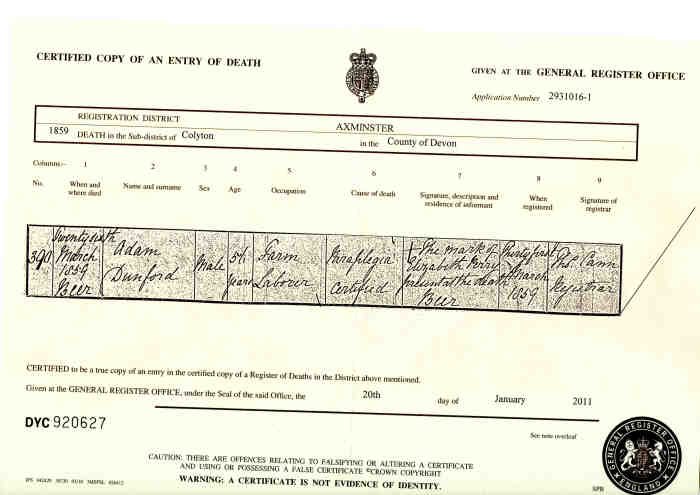 CERTIFIED COPY OF AN ENTRY OF DEATH
GIVEN AT THE GENERAL REGISTER OFFICE
Application Number 2931016-1
REGISTRATION DISTRICT AXMINSTER
1859 DEATH in the Sub-district of Colyton in the County of Devon
Columns:- 1 2 3 4 5 6 7 8 9
No. When and where died Name and surname Sex Age Occupation Cause of death Signature, description and residence of informant When registered Signature of registrar
390 Twenty sixth March 1859 Beer
Adam Dunford
Male
56 years
Farm Laborer
Paraplegia Certified
The mark of Elizabeth Perry present at the death Beer
Thirty first March 1859
Cann Registrar
CERTIFIED to be a true copy of an entry in the certified copy of a Register of Deaths in the District above mentioned.
Given at the GENERAL REGISTER OFFICE, under the Seal of the said Office, the 20th day of January 2011
DYC 920627
See note overleaf
CAUTION: THERE ARE OFFENCES RELATING TO FALSIFYING OR ALTERING A CERTIFICATE
AND USING OR POSSESSING A FALSE CERTIFICATE ©CROWN COPYRIGHT
WARNING: A CERTIFICATE IS NOT EVIDENCE OF IDENTITY.
GENERAL REGISTER OFFICE
ENGLAND